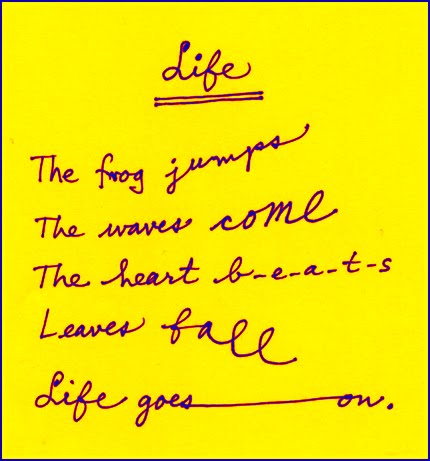 Life
The frog jumps
The waves come
The heart b-e-a-t-s
Leaves fall
Life goes on.